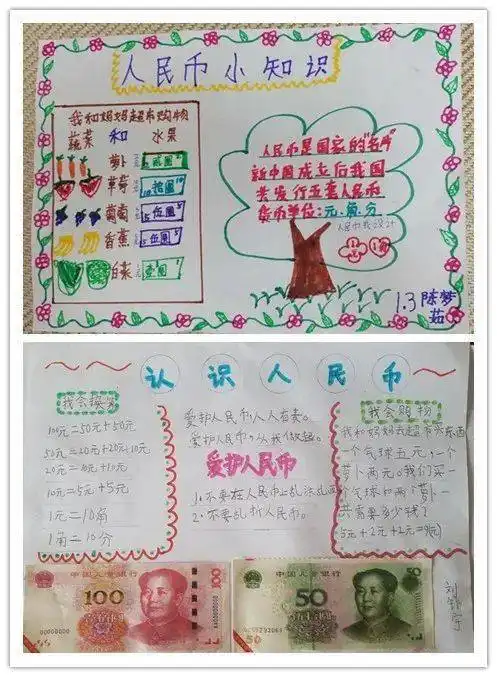 人民币小知识
我和妈妈超市购物
蔬菜 和 水果
萝卜
草莓 10 拾圆 10
葡萄 5 伍圆 5
香蕉 5 伍圆 5
白菜 壹圆
人民币是国家的"名片"
新中国成立后我国
共发行五套人民币
货币单位:元、角、分
人民币我设计
1.3 陈梦
茹
认识人民币
我会换算
100元=50元+50元
50元=20元+20元+10元
20元=10元+10元
10元=5元+5元
1元=10角
1角=10分
爱护人民币人人有责。
爱护人民币,从我做起。
爱护人民币
1.不要在人民币上乱涂乱画
2.不要乱折人民币。
我会购物
我和妈妈去超市买东西
一个气球五元,一个
萝卜两元。我们买一
个气球和两个萝卜一
共需要多少钱?
5元+2元+2元=9(元)
中国人民银行
100
100
中国人民银行
50
50
50